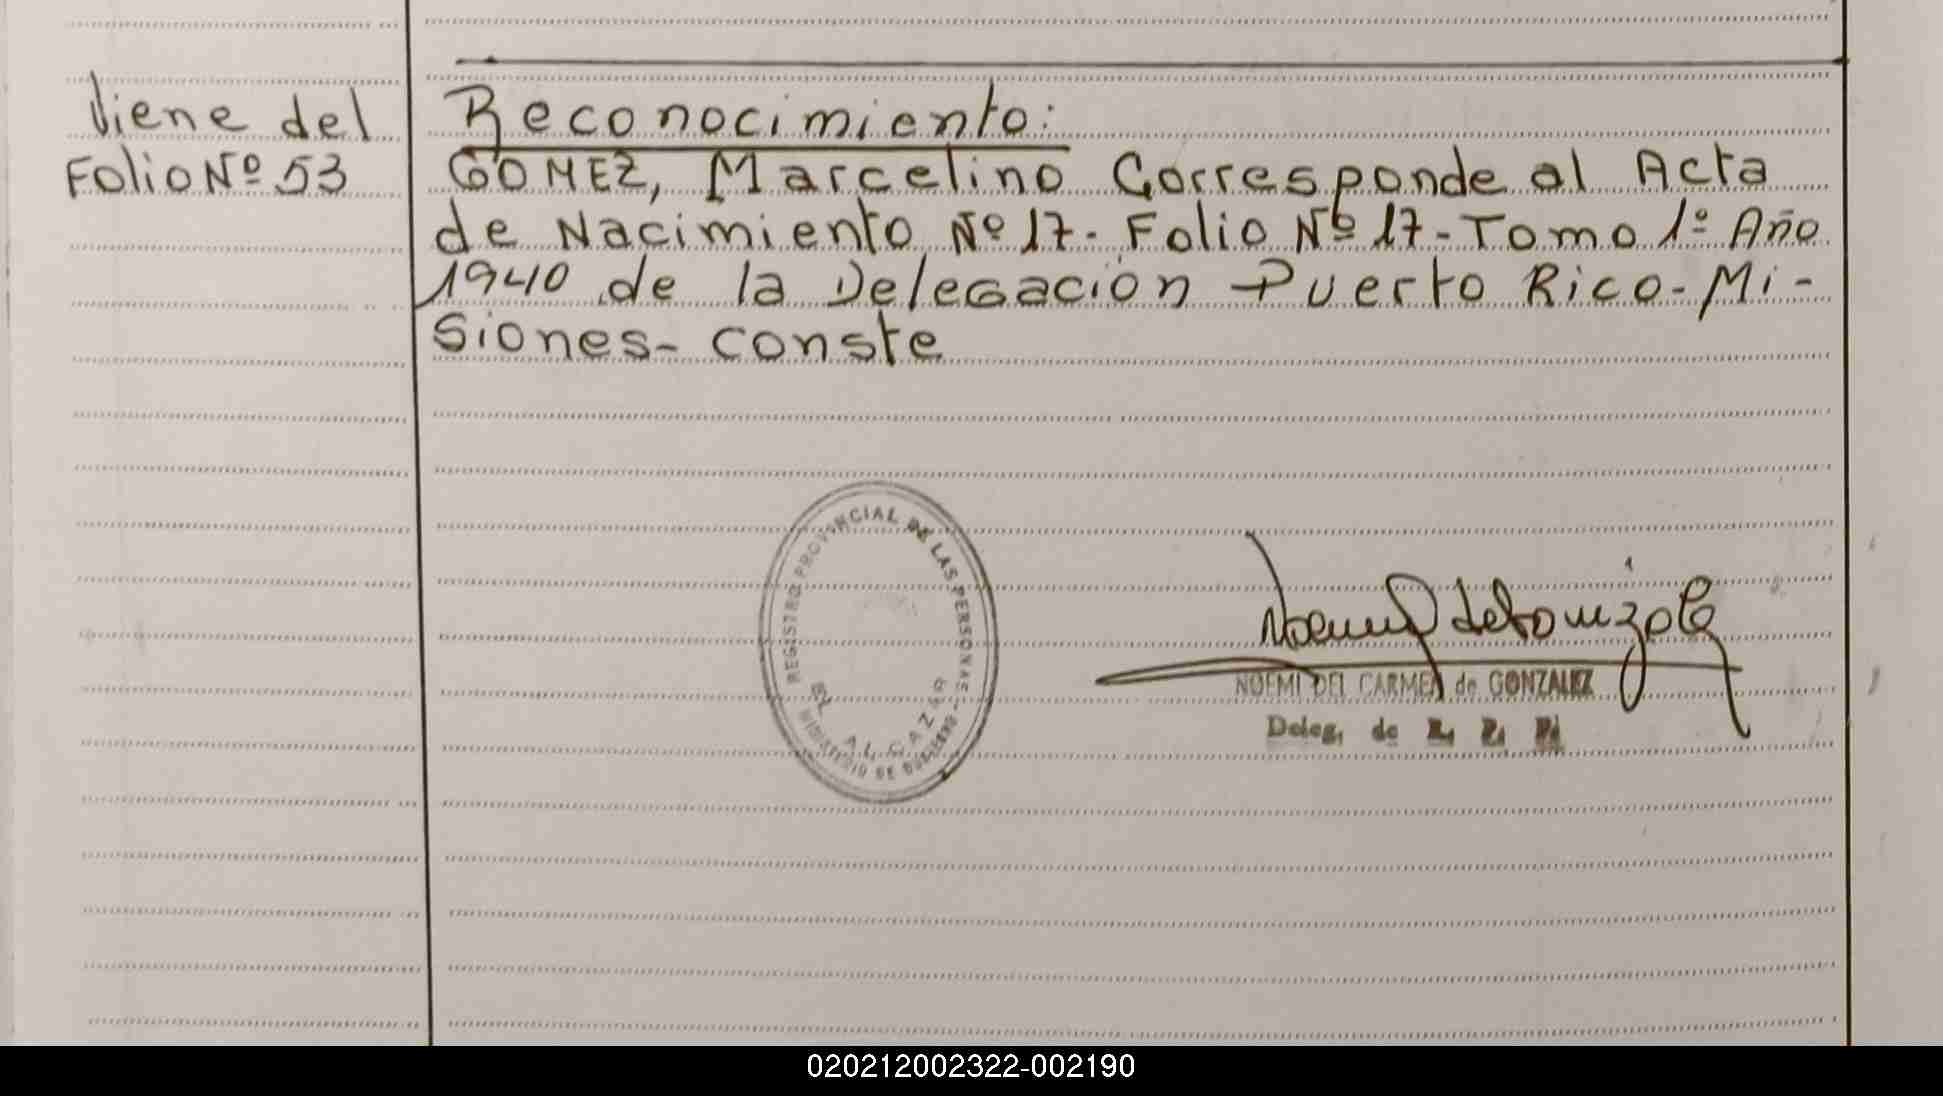 Viene del
Folio Nº 53
Reconocimiento:
GOMEZ, Marcelino Corresponde al Acta
de Nacimiento Nº 17- Folio Nº 17- Tomo 1º Año
1940 de la Delegación Puerto Rico- Mi-
siones- conste
REGISTRO PROVINCIAL DE LAS PERSONAS
EL ALCAZAR
MINISTERIO DE GOBIERNO
NOEMI DEL CARMEN de GONZALEZ
Deleg. de
020212002322-002190